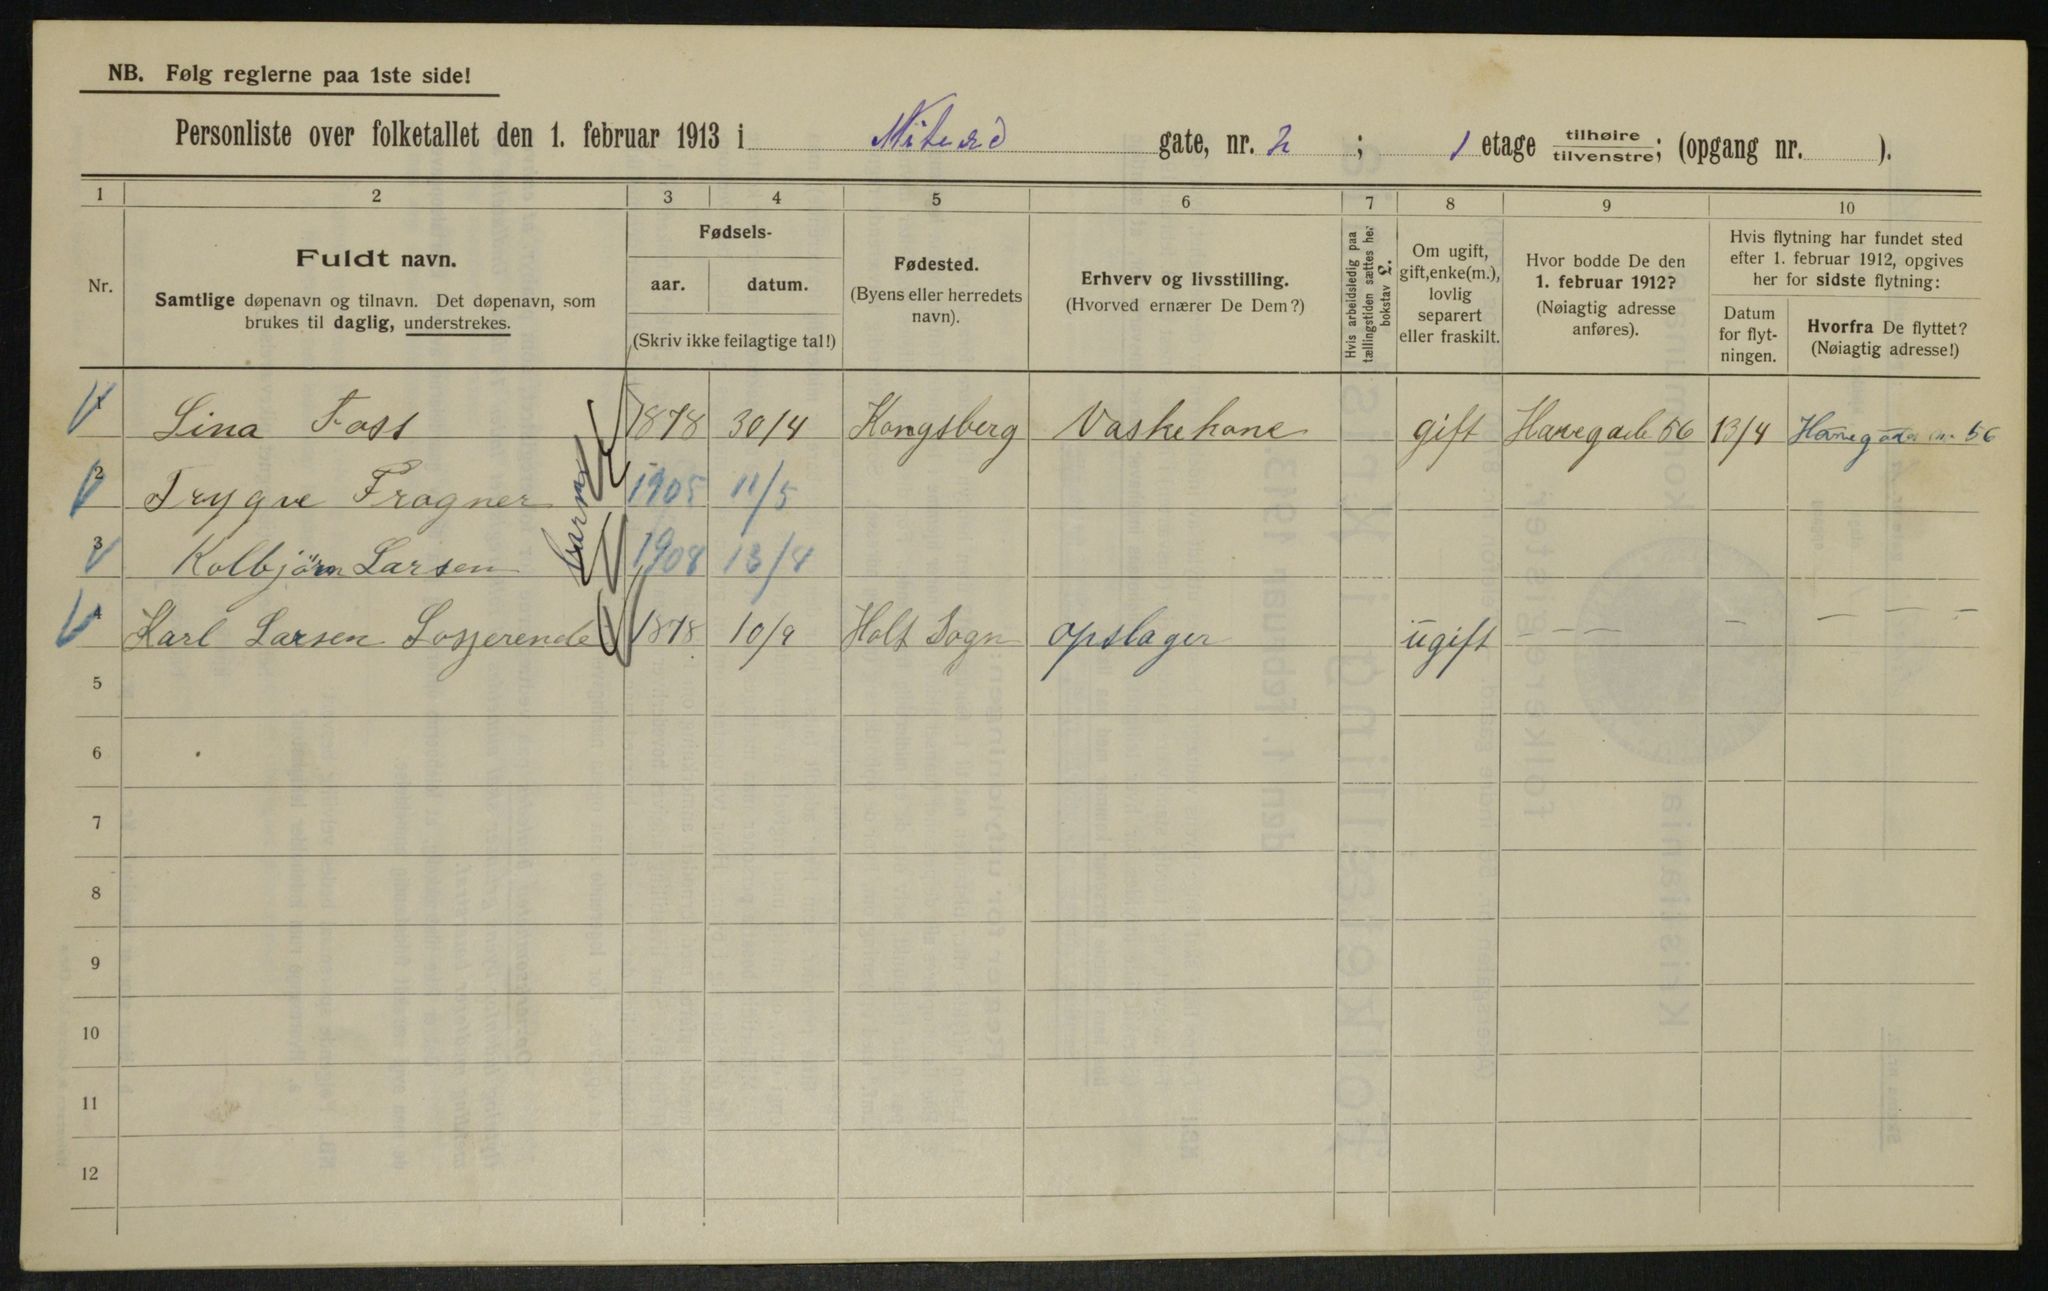 NB. Følg reglerne paa 1ste side!
Personliste over folketallet den 1. februar 1913 i gate, nr. 2 ; 1 etage tilhøire tilvenstre; (opgang nr. ).
1 2 3 4 5 6 7 8 9 10
Nr.
Fuldt navn.
Samtlige døpenavn og tilnavn. Det døpenavn, som
brukes til daglig, understrekes.
Fødsels-
aar. datum.
(Skriv ikke feilagtige tal!)
Fødested.
(Byens eller herredets
navn).
Erhverv og livsstilling.
(Hvorved ernærer De Dem?)
Hvis arbeidsledig paa
tællingstiden sættes her
bokstav L.
Om ugift,
gift, enke(m.),
lovlig
separert
eller fraskilt.
Hvor bodde De den
1. februar 1912?
(Nøiagtig adresse
anføres).
Hvis flytning har fundet sted
efter 1. februar 1912, opgives
her for sidste flytning:
Datum
for flyt-
ningen.
Hvorfra De flyttet?
(Nøiagtig adresse!)
1 Lina Foss 1878 30/4 Kongsberg Vaskekone gift 56 13/4 56
2 Trygve Frogner 1905 11/5
barn
3 Kolbjörn Larsen 1908 13/4
4 Karl Larsen Losjerende 1878 10/9 Holt Sogn opslager ugift - - - - - - -
5
6
7
8
9
10
11
12